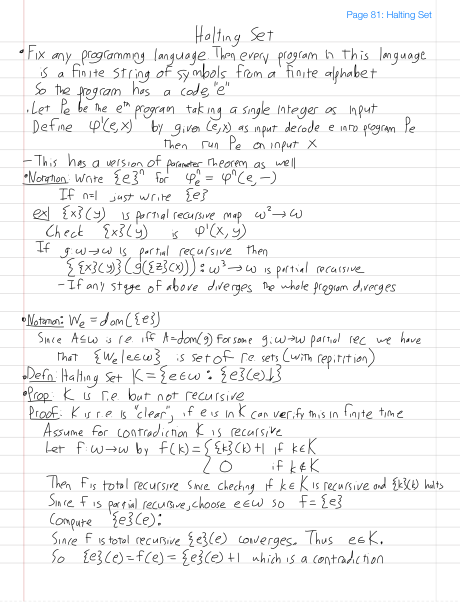 Page 81: Halting Set
Halting Set
• Fix any programming language. Then every program in this language
is a finite string of symbols from a finite alphabet
So the program has a code "e"
• Let Pe be the eth program taking a single integer as input
Define φ'(e,x) by given (e,x) as input decode e into program Pe
then run Pe on input x
- This has a version of parameter theorem as well
• Notation: Write {e}ⁿ for φₑⁿ = φⁿ(e, -)
If n=1 just write {e}
ex] {x}(y) is partial recursive map ω² → ω
Check {x}(y) is φ'(x,y)
If g: ω→ω is partial recursive then
{{x}(y)}(g({z}(x))): ω³→ω is partial recursive
- If any stage of above diverges the whole program diverges
• Notation: We = dom({e})
Since A⊆ω is r.e iff A=dom(g) for some g: ω→ω partial rec we have
that {We | e∈ω} is set of r.e. sets (with repitition)
• Defn: Halting Set K = {e∈ω : {e}(e)↓}
• Prop: K is r.e but not recursive
Proof: K is r.e is "clear", if e is in K can verify this in finite time
Assume for contradiction K is recursive
Let f: ω→ω by f(k) = { {k}(k)+1 if k∈K
0 if k∉K
Then f is total recursive since checking if k∈K is recursive and {k}(k) halts
Since f is partial recursive, choose e∈ω so f = {e}
Compute {e}(e):
Since f is total recursive {e}(e) converges. Thus e∈K.
So {e}(e) = f(e) = {e}(e) +1 which is a contradiction